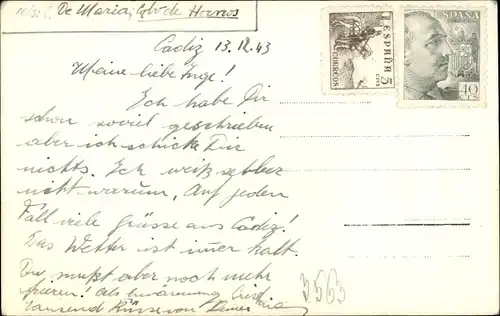 De Maria, Lobo de Hornos
Cadiz 13.12.43
ESPAÑA 5 CTS
CORREOS
ESPAÑA
40 CTS
Meine liebe Inge!
Ich habe Dir
schon soviel geschrieben
aber ich schicke Dir
nichts. Ich weiß selber
nicht warum. Auf jeden
Fall viele Grüsse aus Cadiz!
Das Wetter ist imer kalt.
Du mußt aber noch mehr
frieren! Als Erwärmung
tausend Küsse von Deiner
3563